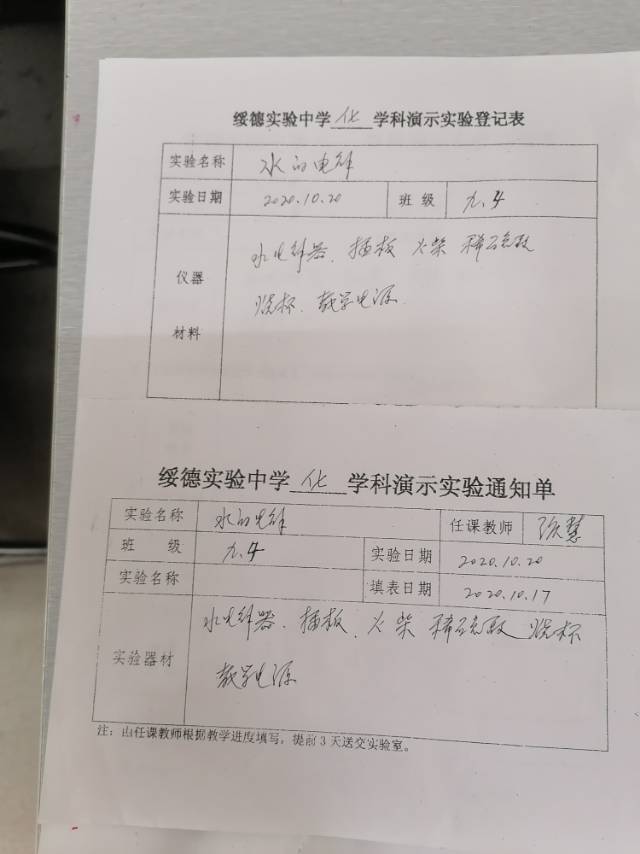 绥德实验中学 化 学科演示实验登记表
实验名称 水的电解
实验日期 2020.10.20 班 级 九.4
仪器
材料
水电解器、插板 火柴 稀硫酸
烧杯、教学电源
绥德实验中学 化 学科演示实验通知单
实验名称 水的电解 任课教师 慧
班 级 九.4 实验日期 2020.10.20
实验名称 填表日期 2020.10.17
实验器材
水电解器、插板、火柴 稀硫酸 烧杯
教学电源
注：由任课教师根据教学进度填写，提前3天送交实验室。